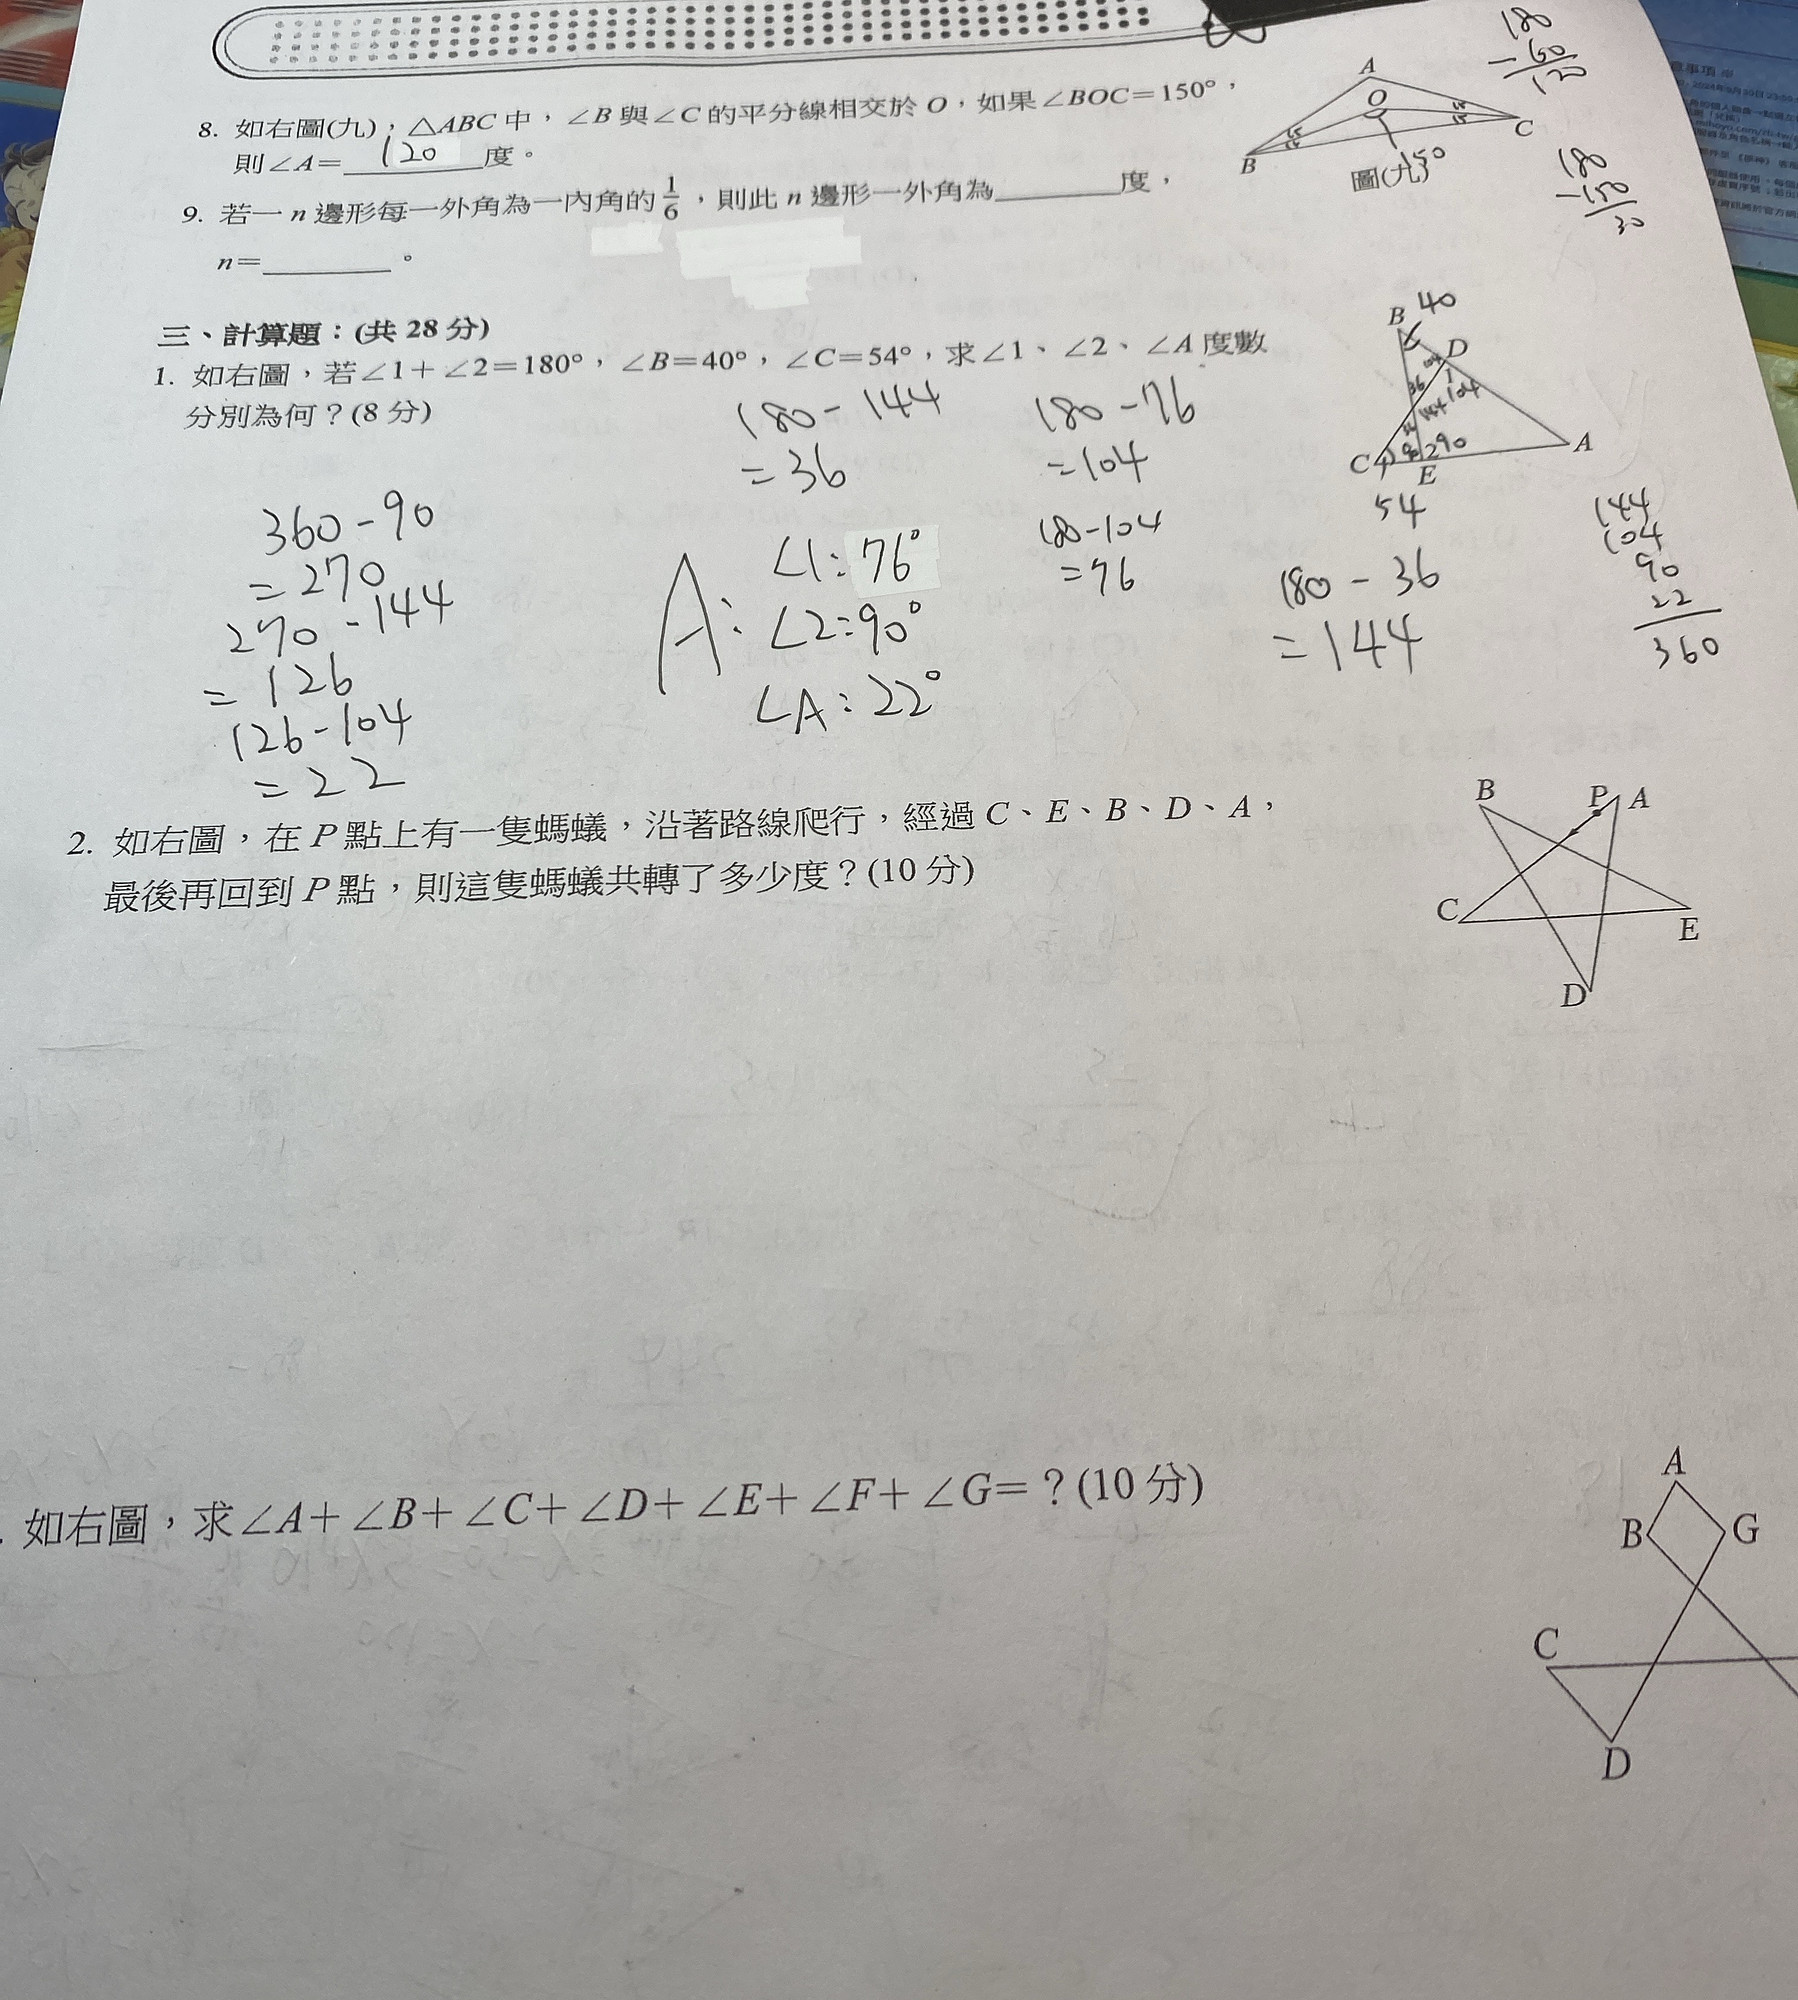 8. 如右圖(九)，△ABC 中，∠B 與∠C 的平分線相交於 O，如果∠BOC=150°，
則∠A= 120 度。
A
O
B
C
150
圖(九)
180
-60
120
180
-150
30
9. 若一 n 邊形每一外角為一內角的 1/6，則此 n 邊形一外角為________度，
n=________。
三、計算題：(共 28 分)
1. 如右圖，若∠1+∠2=180°，∠B=40°，∠C=54°，求∠1、∠2、∠A 度數
分別為何？(8 分)
B 40
D
36
144
1
104
C
E
290
A
54
180-144
=36
180-76
=104
180-104
=76
360-90
=270
270-144
=126
126-104
=22
A: ∠1:76°
∠2:90°
∠A:22°
180-36
=144
144
104
90
22
360
2. 如右圖，在 P 點上有一隻螞蟻，沿著路線爬行，經過 C、E、B、D、A，
最後再回到 P 點，則這隻螞蟻共轉了多少度？(10 分)
B
P
A
C
E
D
. 如右圖，求∠A+∠B+∠C+∠D+∠E+∠F+∠G=？(10 分)
A
B
G
C
D